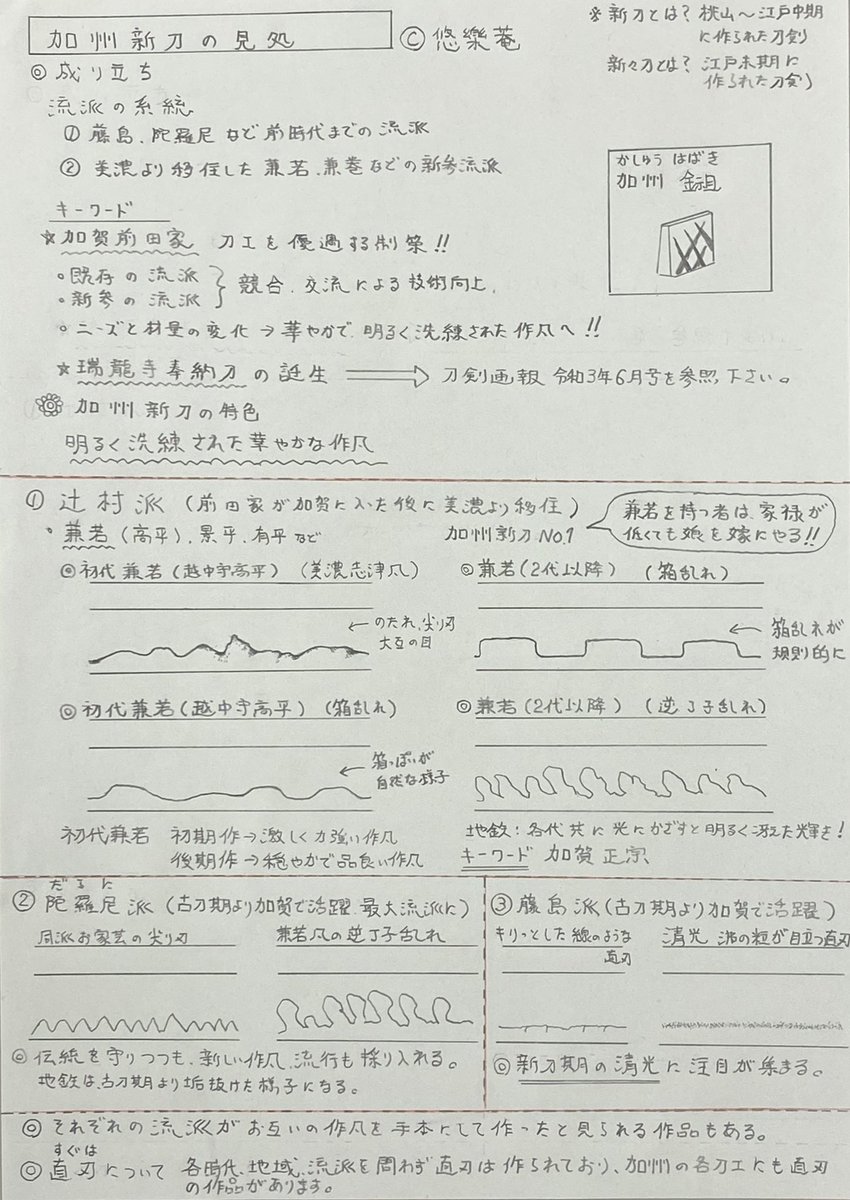 加州新刀の見処
© 悠樂菴
※新刀とは? 桃山〜江戸中期
に作られた刀剣
新々刀とは? 江戸末期に
作られた刀剣)
◎成り立ち
流派の系統
① 藤島、陀羅尼など前時代までの流派
② 美濃より移住した兼若、兼巻などの新参流派
かしゅう はばき
加州 鎺
キーワード
☆加賀前田家 刀工を優遇する制策!!
○既存の流派
○新参の流派
} 競合、交流による技術向上、
○ニーズと材量の変化→華やかで、明るく洗練された作風へ!!
☆瑞龍寺奉納刀の誕生 ⇒ 刀剣画報 令和3年6月号を参照下さい。
加州新刀の特色
明るく洗練された華やかな作風
① 辻村派(前田家が加賀に入た後に美濃より移住)
・兼若(高平)、景平、有平など
加州新刀No.1
兼若を持つ者は、家禄が
低くても娘を嫁にやる!!
◎初代兼若(越中守高平)(美濃志津風)
←のたれ、尖り刃
大互の目
◎兼若(2代以降)(箱乱れ)
←箱乱れが
規則的に
◎初代兼若(越中守高平)(箱乱れ)
←箱っぽいが
自然な様子
◎兼若(2代以降)(逆丁子乱れ)
初代兼若 初期作→激しく力強い作風
後期作→穏やかで品良い作風
地鉄:各代共に光にかざすと明るく冴えた輝き!
キーワード 加賀正宗
だらに
② 陀羅尼派(古刀期より加賀で活躍、最大流派に)
同派お家芸の尖り刃
兼若風の逆丁子乱れ
◎伝統を守りつつも、新しい作風、流行も採り入れる。
地鉄は、古刀期より垢抜けた様子になる。
③藤島派(古刀期より加賀で活躍)
キリっとした線のような
直刃
清光 沸の粒が目立つ直刃
◎新刀期の清光に注目が集まる。
◎それぞれの流派がお互いの作風を手本にして作ったと見られる作品もある。
すぐは
◎直刃について 各時代、地域、流派を問わず直刃は作られており、加州の各刀工にも直刃
の作品があります。